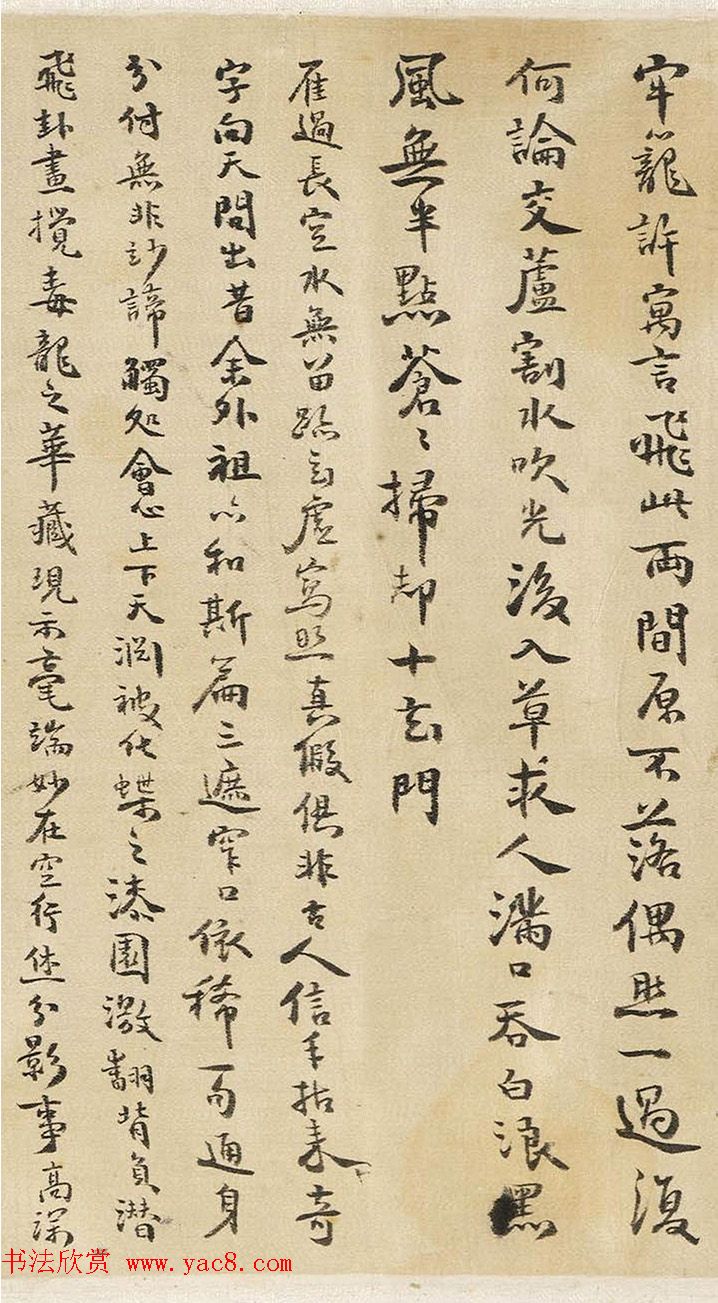 牢籠許寓言飛此兩間原不落偶然一過復
何論交蘆割水吹光後入草求人滿口吞白浪黑
風無半點蒼〻掃却十玄門
雁過長空水無留跡玄虛寫照真假俱非古人信手拈來奇
字向天問出昔余外祖以和斯篇三遮窄口依稀一句通身
分付無非妙諦觸処會心上下天淵被化蝶之漆園激翻背負潛
飛卦畫攪毒龍之華藏現示毫端妙在空行迹分影事高深
书法欣赏 www.yac8.com